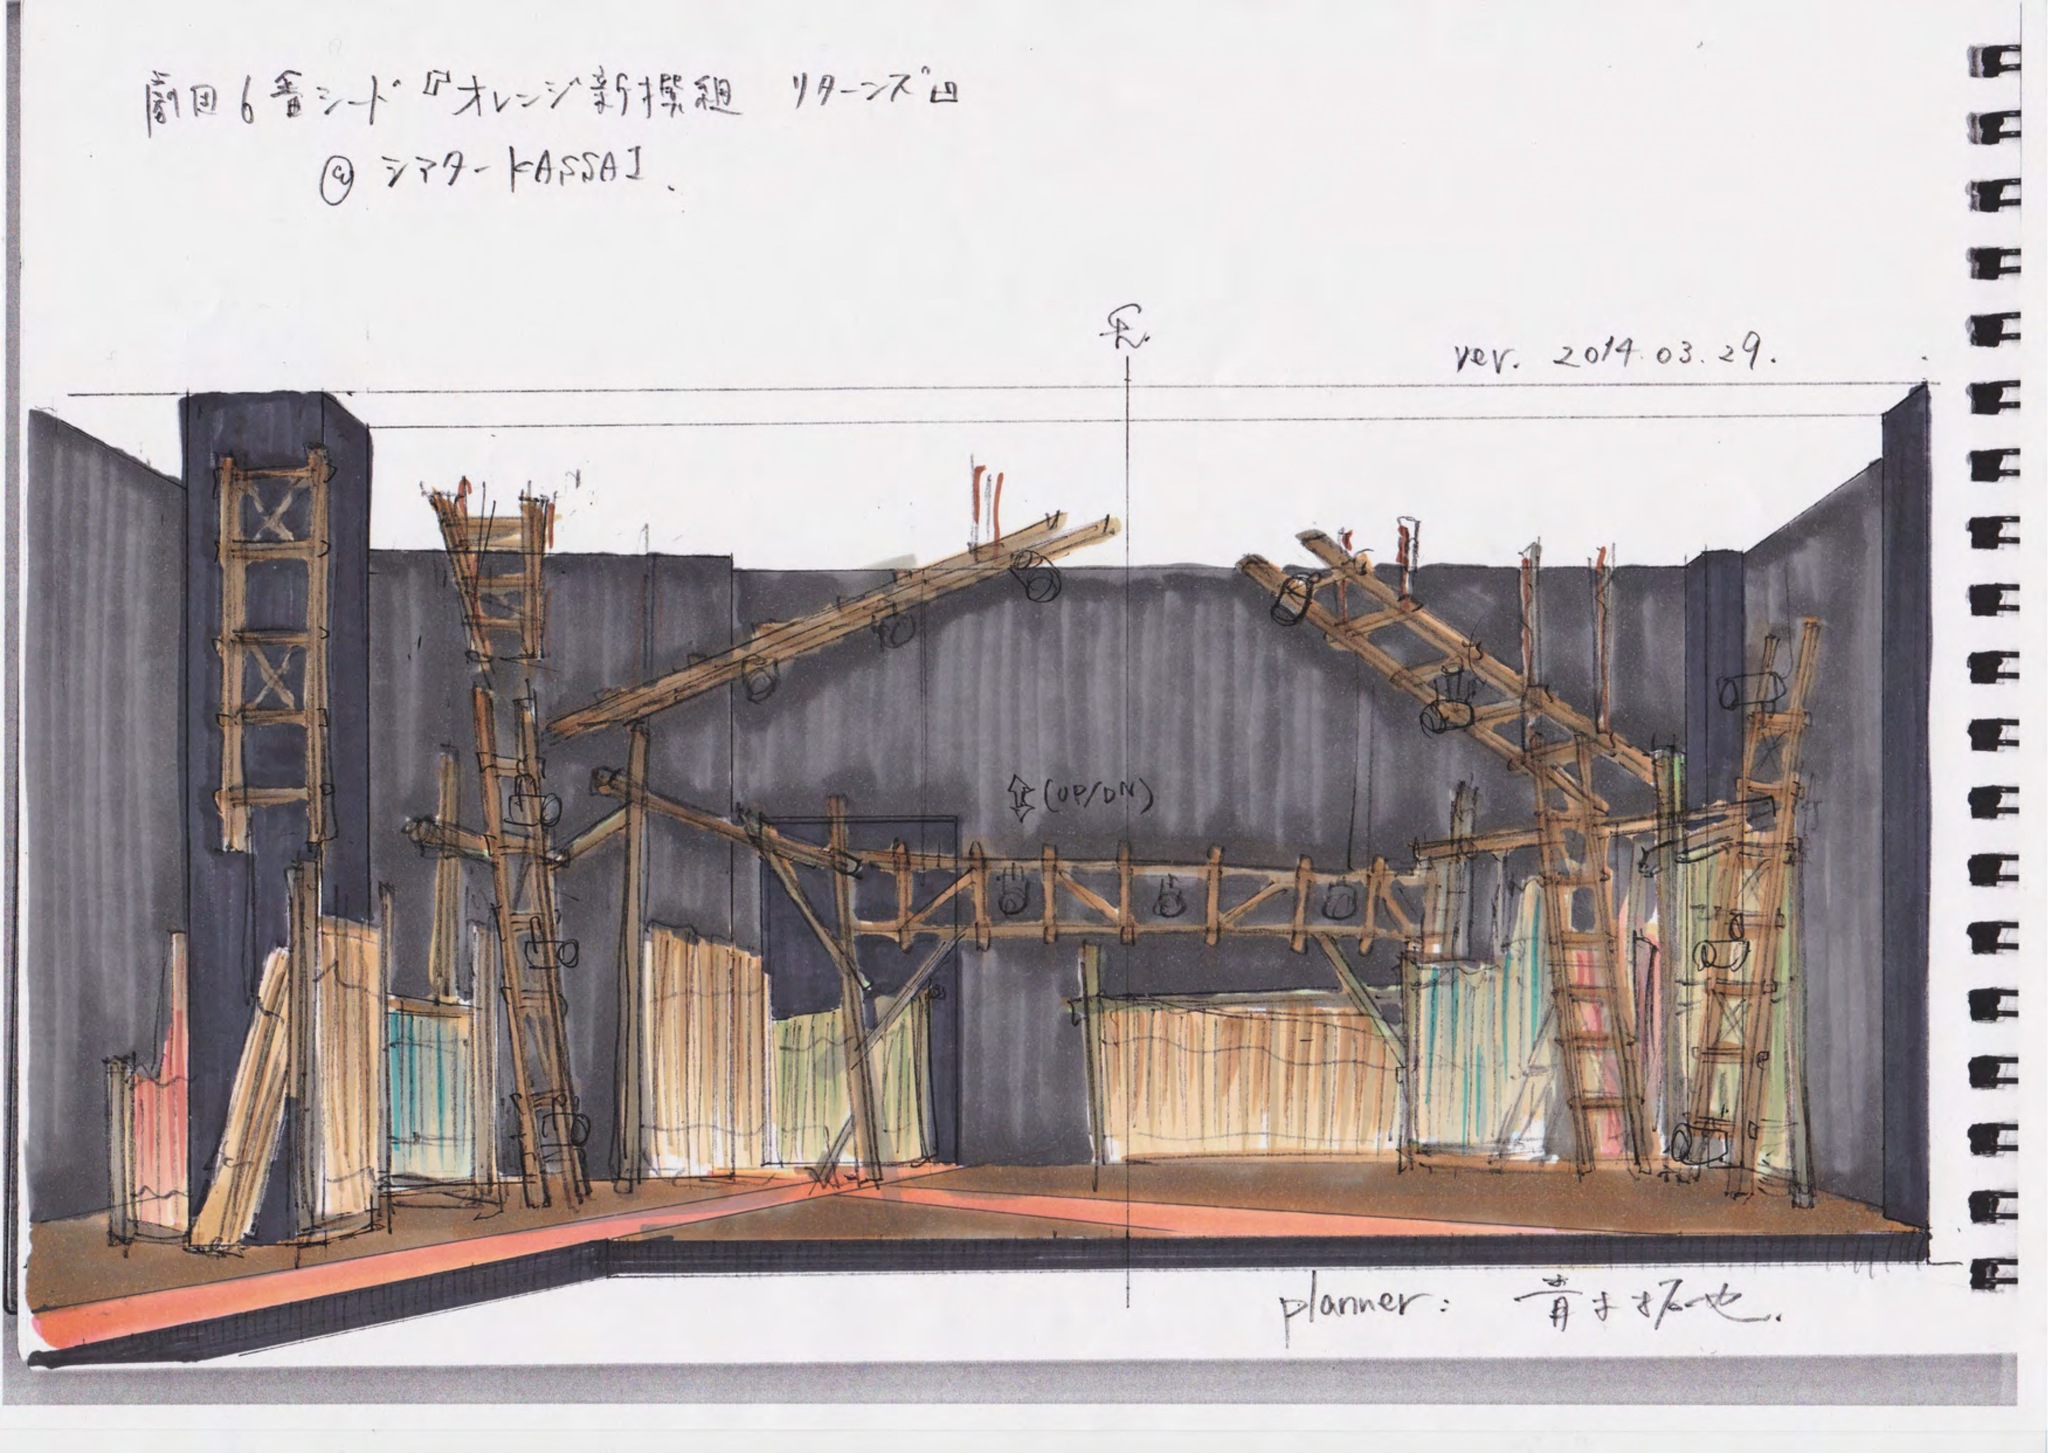 劇団6番シード『オレンジ新撰組 リターンズ』
@ シアターKASSAI.
CL.
ver. 2014.03.29.
(UP/DN)
planner: 青木拓也.